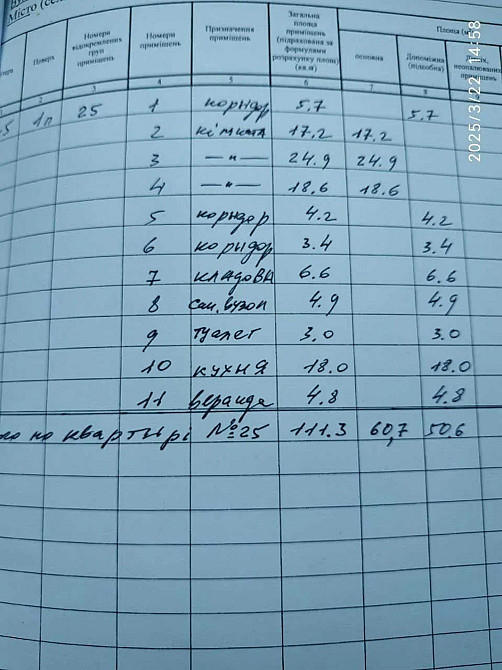 Місто (се
Поверх
Номери відокремлених груп приміщень
Номери приміщень
Призначення приміщень
Загальна площа приміщень (підрахована за формулами розрахунку площ) (кв.м)
Площа
основна
Допоміжна (підсобна)
2 3 4 5 6 7 8
1п 25 1 коридор 5.7 5.7
2 кімната 17.2 17.2
3 —"— 24.9 24.9
4 —"— 18.6 18.6
5 коридор 4.2 4.2
6 коридор 3.4 3.4
7 кладовк 6.6 6.6
8 сан.вузол 4.9 4.9
9 туалет 3.0 3.0
10 кухня 18.0 18.0
11 веранда 4.8 4.8
по квартырі №25 111.3 60,7 50.6
2025/3/22 14:58